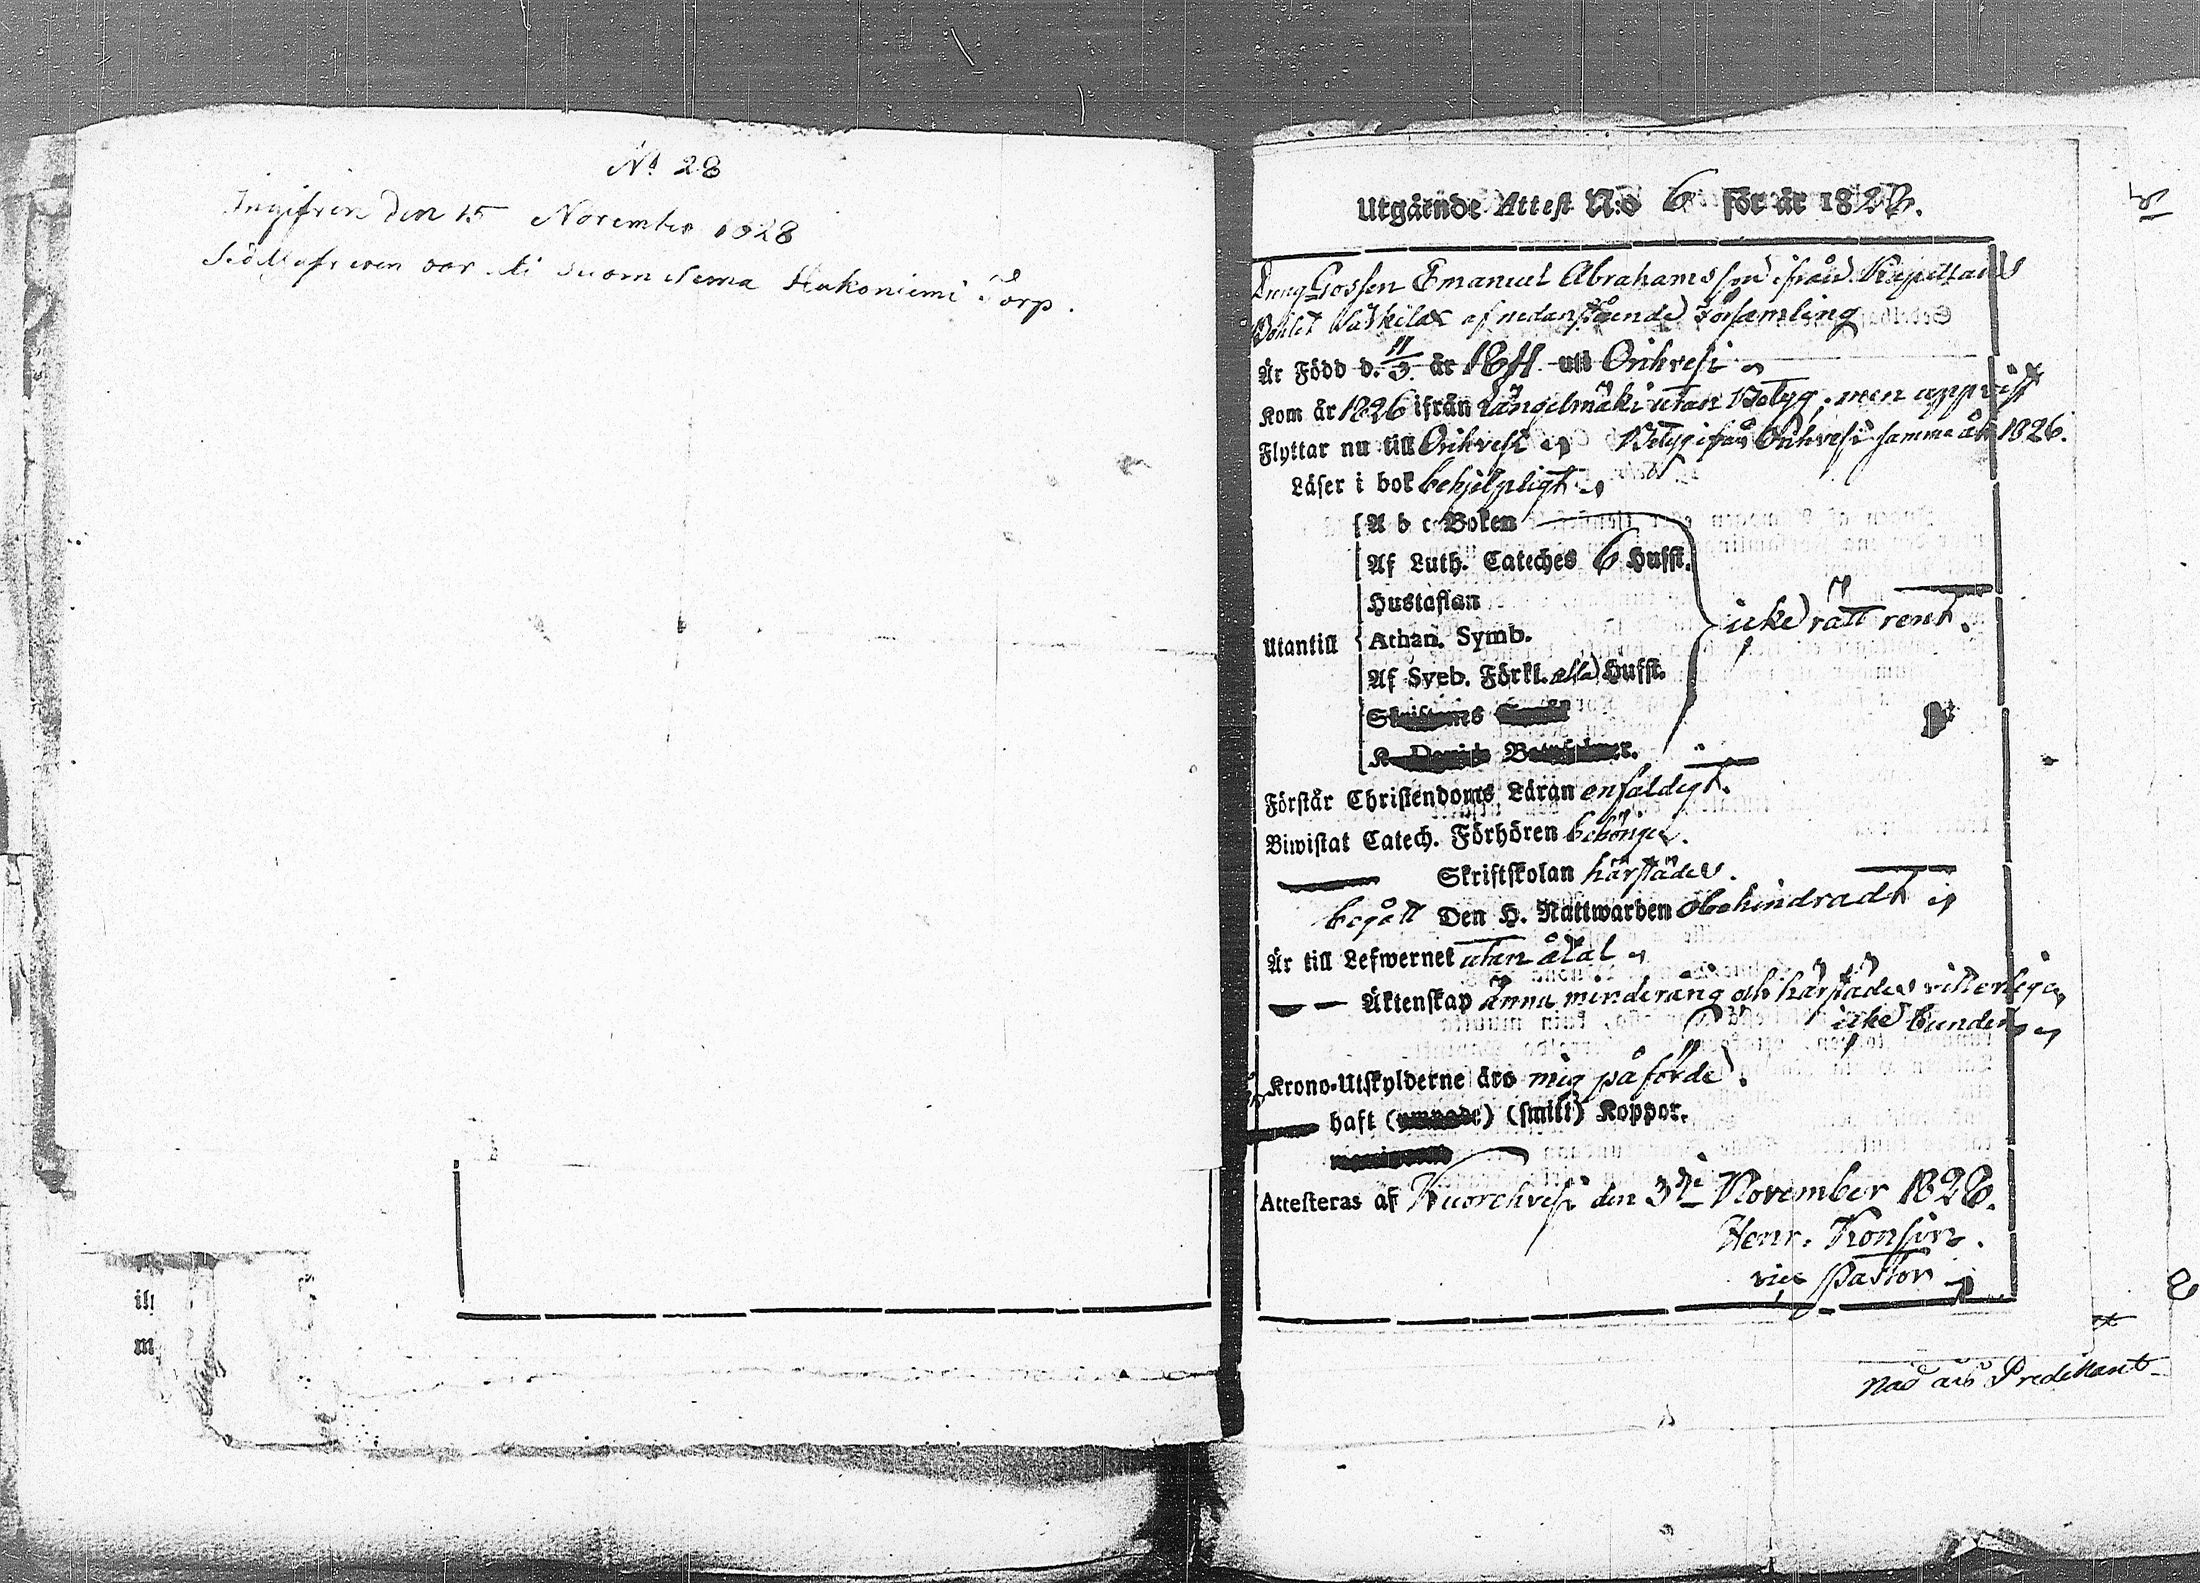 No 28
Ingifven den 15 November 1828
var i Suomasema Hakoniemi Torp.
Utgående Attest N:o 6 för år 1828.
Dreng Gossen Emanuel Abrahamsson ifrån Kapellans
Bohlet Väskilax af nedanstående Församling
Är Född d. 11/3 år 1811 uti Orihvesi
Kom år 1826 ifrån Längelmäki utan Betyg, men uppvist
Flyttar nu till Orihvesi Betyg ifrån Orihvesi samma år 1826.
Läser i bok behjelpligt
A b c Boken
Af Luth. Cateches 6 Hufst.
Hustaflan
icke rätt rent.
Utantill Athan. Symb.
Af Sveb. Förkl. alla Hufst.
Förstår Christendoms Läran enfaldigt.
Biwistat Catech. Förhören behörigen.
Skriftskolan härstädes.
begått Den H. Nattwarden obehindradt
Är till Lefwernet utan åtal
Äktenskap ännu minderårig och härstädes vitterligen
icke bunden
Krono-Utskylderne äro mig påförde.
haft (smitt) Koppor.
Attesteras af Kuorehvesi den 3di November 1828.
Henr. Konsin.
vice Pastor
Nåd. års Predikant
ill
m